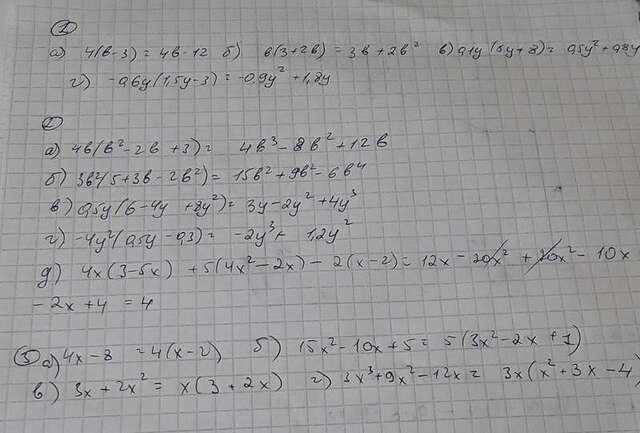 1
а) 4(в-3) = 4в-12 б) в(3+2в) = 3в+2в² в) 0,1y(5y+8) = 0,5y²+0,8y
г) -0,6y(1,5y-3) = -0,9y²+1,8y
2
а) 4в(в²-2в+3) = 4в³-8в²+12в
б) 3в²(5+3в-2в²) = 15в²+9в²-6в⁴
в) 0,5y(6-4y+8y²) = 3y-2y²+4y³
г) -4y²(0,5y-0,3) = -2y³+1,2y²
д) 4x(3-5x)+5(4x²-2x)-2(x-2) = 12x-20x²+20x²-10x
-2x+4 = 4
3 а) 4x-8 = 4(x-2) б) 15x²-10x+5 = 5(3x²-2x+1)
в) 3x+2x² = x(3+2x) г) 3x³+9x²-12x = 3x(x²+3x-4